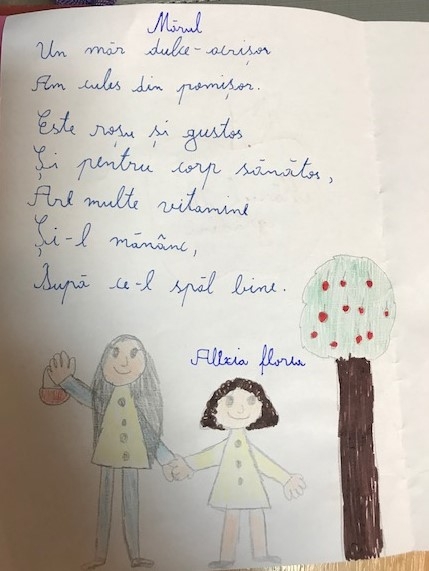 Mărul
Un măr dulce-acrișor
Am cules din pomișor.
Este roșu și gustos
Și pentru corp sănătos,
Are multe vitamine
Și-l mănânc,
După ce-l spăl bine.
Alexia Florea